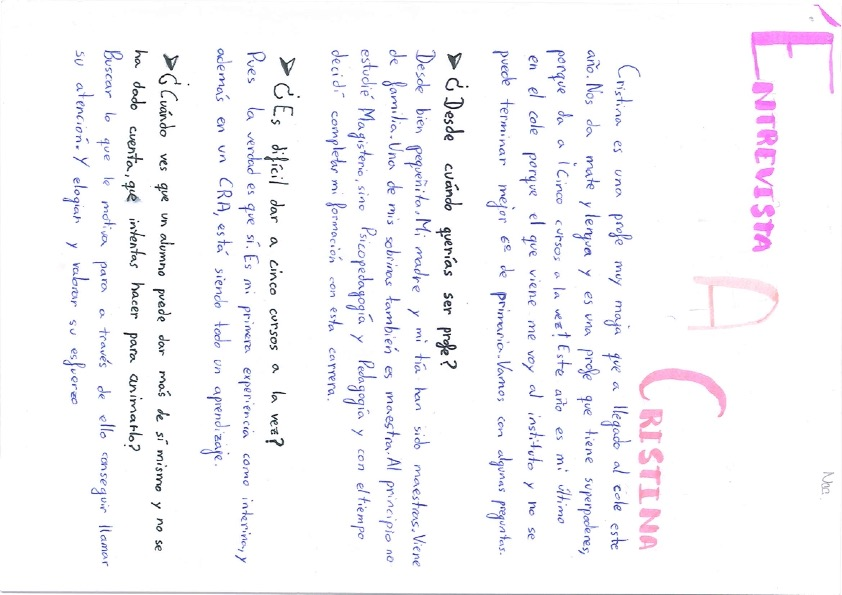 Noe.
ENTREVISTA A CRISTINA
Cristina es una profe muy maja que a llegado al cole este
año. Nos da mate y lengua y es una profe que tiene superpoderes,
porque da a ¡Cinco cursos a la vez! Este año es mi último
en el cole porque el que viene me voy al instituto y no se
puede terminar mejor 6º de primaria. Vamos con algunas preguntas.
➤¿Desde cuándo querías ser profe?
Desde bien pequeñita. Mi madre y mi tía han sido maestras. Viene
de familia. Una de mis sobrinas también es maestra. Al principio no
estudié Magisterio, sino Psicopedagogía y Pedagogía y con el tiempo
decidí completar mi formación con esta carrera.
➤¿Es difícil dar a cinco cursos a la vez?
Pues la verdad es que sí. Es mi primera experiencia como interina, y
además en un CRA, está siendo todo un aprendizaje.
➤¿Cuándo ves que un alumno puede dar más de sí mismo y no se
ha dado cuenta, qué intentas hacer para animarlo?
Buscar lo que le motiva para a través de ello conseguir llamar
su atención. Y elogiar y valorar su esfuerzo